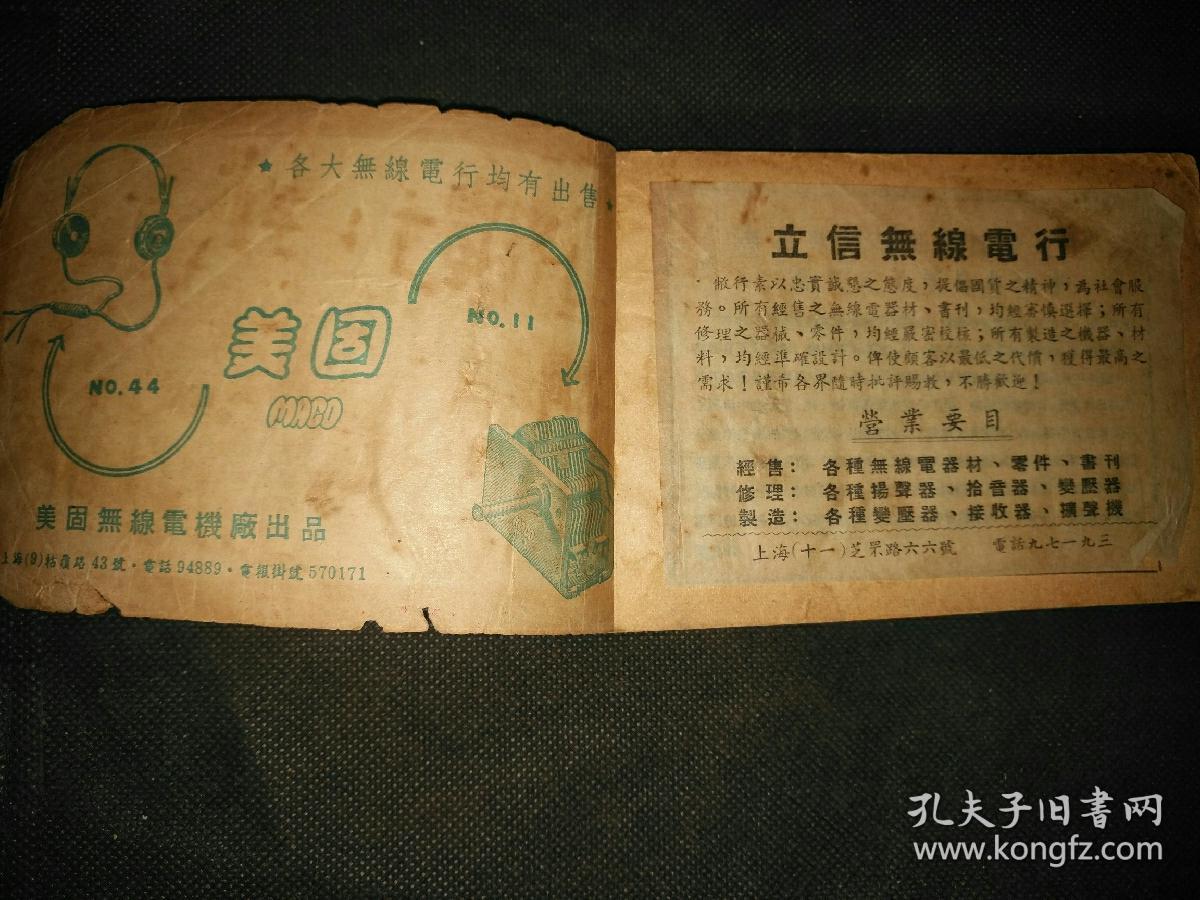 ★各大無線電行均有出售★
NO.11
美固
MACO
NO.44
美固無線電機廠出品
上海(9)牯嶺路43號·電話94889·電報掛號570171
立信無線電行
敝行素以忠實誠懇之態度,提倡國貨之精神,為社會服
務。所有經售之無線電器材、書刊,均經審慎選擇;所有
修理之器械、零件,均經嚴密校核;所有製造之機器、材
料,均經準確設計。俾使顧客以最低之代價,獲得最高之
需求!謹希各界隨時批評賜教,不勝歡迎!
營業要目
經售:各種無線電器材、零件、書刊
修理:各種揚聲器、拾音器、變壓器
製造:各種變壓器、接收器、擴聲機
上海(十一)芝罘路六六號 電話九七一九三
孔夫子旧书网
www.kongfz.com